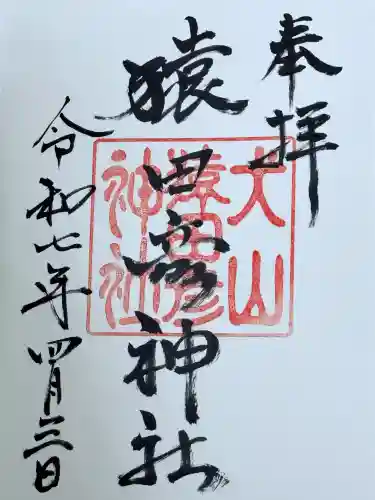 奉拝
猿田彦神社
令和七年四月三日
犬山
猿田彦
神社